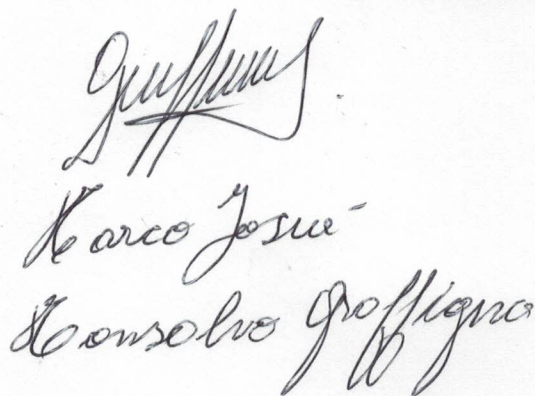 Marco Josué
Monsalvo Graffigna